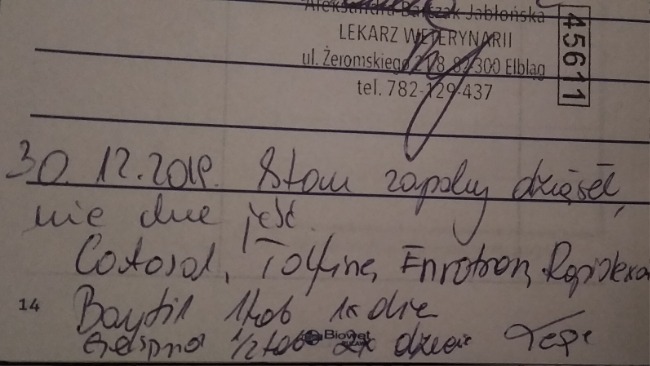 Aleksandra Jabłońska
LEKARZ WETERYNARII
ul. Żeromskiego 2/8, 82-300 Elbląg
tel. 782-129-437
45611
30.12.2019. Stan zapalny dziąseł,
nie chce jeść.
Catosal, Tolfine, Enrotron, Rapidexon
14 Baytril 1tab 1x dzie
1/2 tab 2x dziennie
Biowet